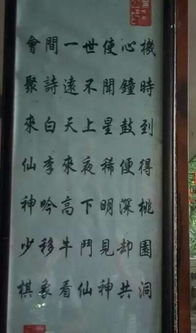 機時到得桃園洞
心鐘鼓便深却共
使聞星稀明見神
世不上夜下鬥仙
一遠天來高牛看
間詩白李吟移象
會聚來仙神少棋